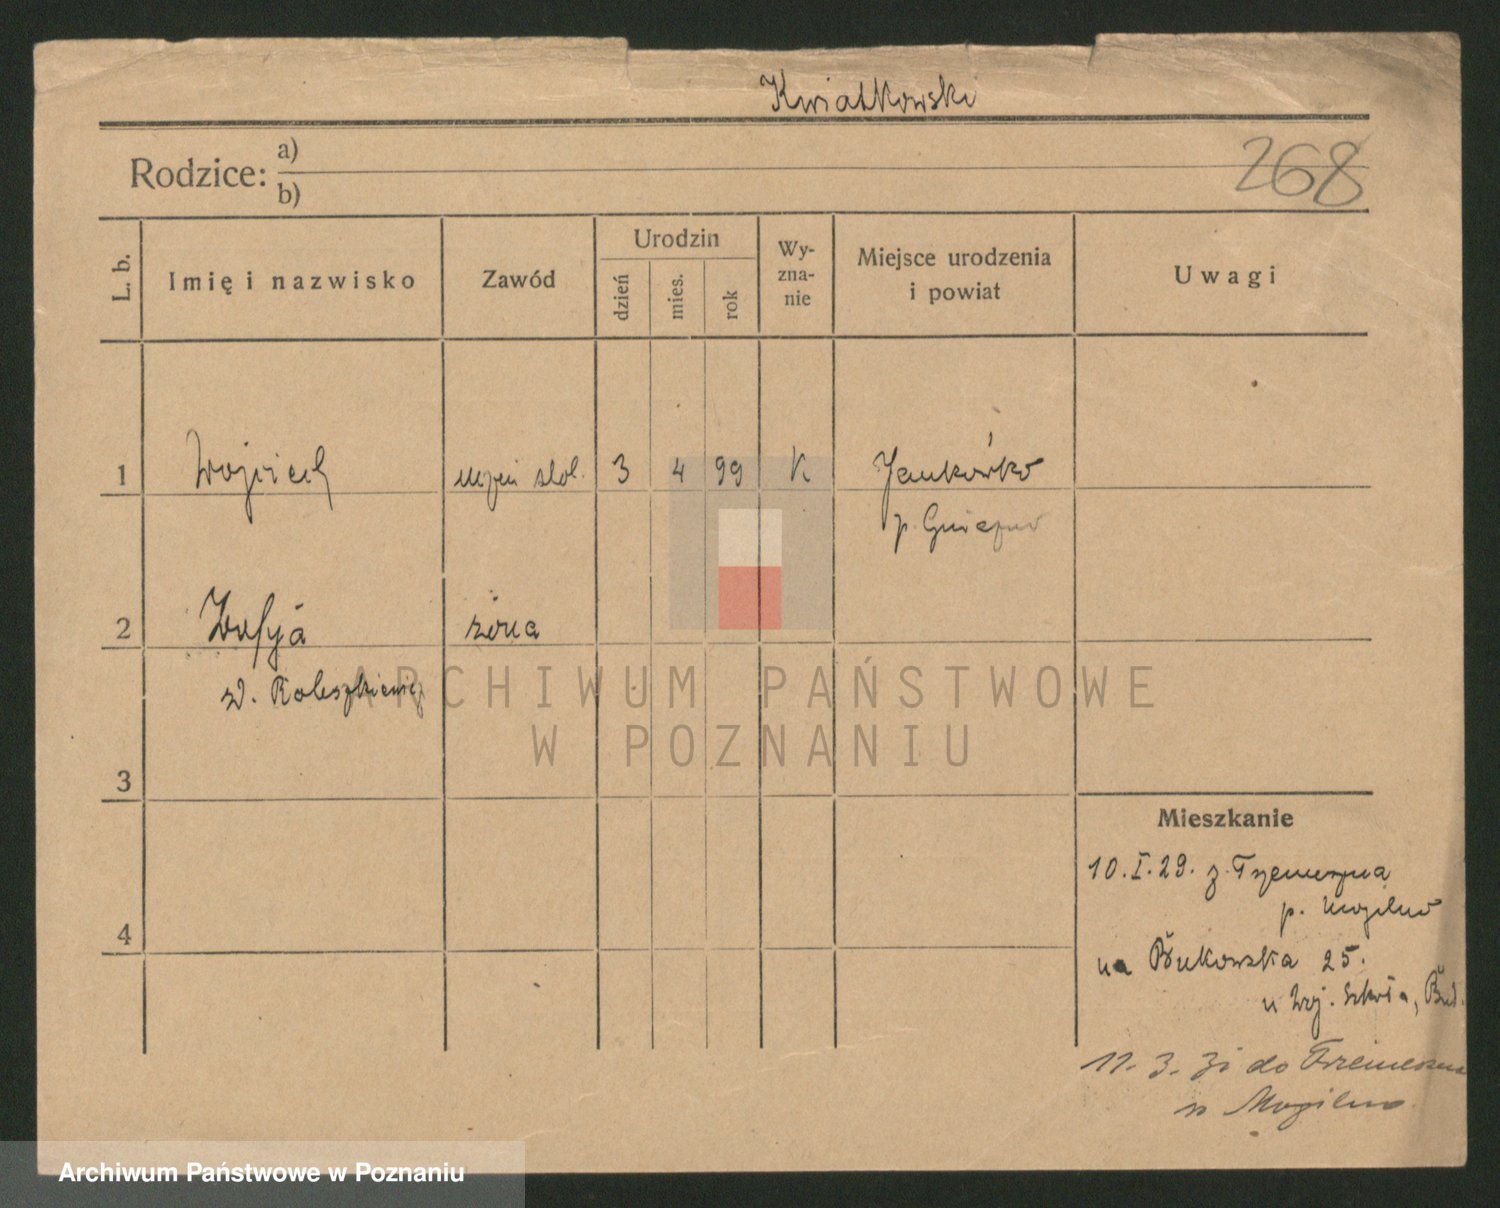 Kwiatkowski
Rodzice: a)
b)
268
L. b.
Imię i nazwisko
Zawód
Urodzin
dzień
mies.
rok
Wy-
zna-
nie
Miejsce urodzenia
i powiat
Uwagi
1 Wojciech uczeń stol. 3 4 99 K Jankówko
p. Gniezno
2 Zofja żona
zd. Roleszkiewicz
3
4
Mieszkanie
10.I.29. z Trzemeszna
p. Mogilno
na Bukowska 25.
u Woj. Bud.
11. 3. 31 do Trzemeszna
p Mogilno
ARCHIWUM PAŃSTWOWE
W POZNANIU
Archiwum Państwowe w Poznaniu